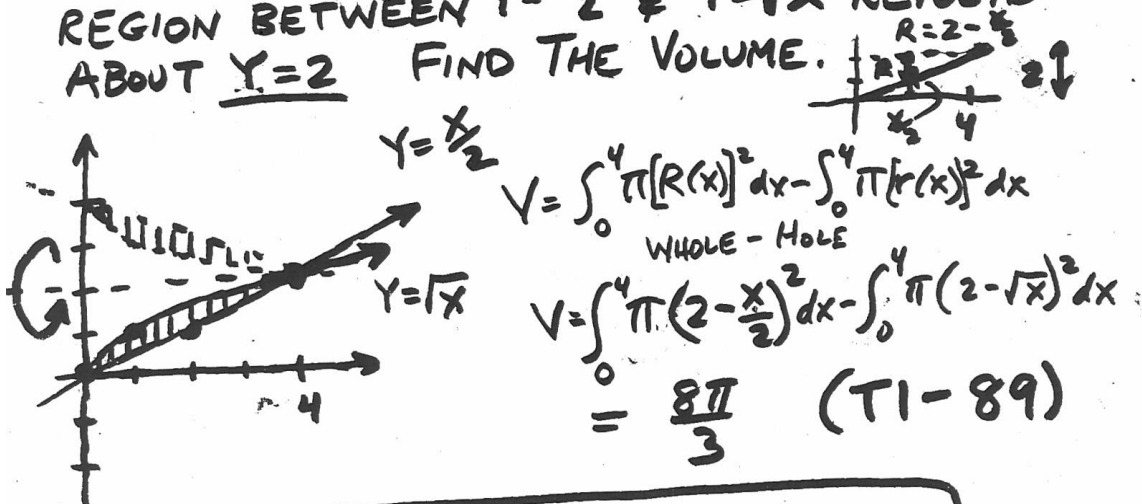 REGION BETWEEN Y= 2 & Y=√X
ABOUT Y=2 FIND THE VOLUME.
R=2-x/2
2
x/2 4
Y=x/2
V=∫₀⁴π[R(x)]²dx-∫₀⁴π[r(x)]²dx
WHOLE - HOLE
Y=√x
V=∫₀⁴π(2-x/2)²dx-∫₀⁴π(2-√x)²dx
4
= 8π/3 (TI-89)